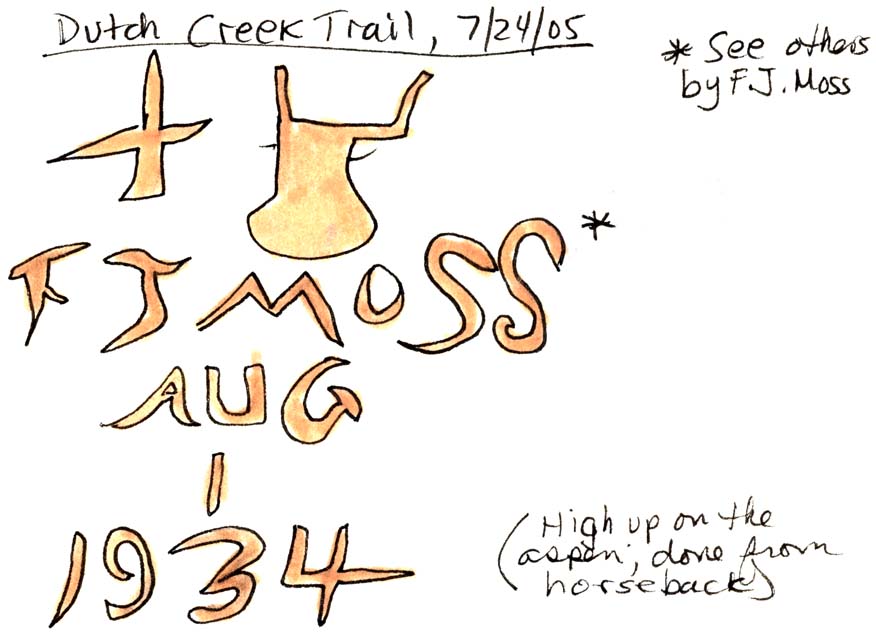 Dutch Creek Trail, 7/24/05
* See others
by F.J. Moss
F J MOSS *
AUG
1
1934
(High up on the
aspen; done from
horseback)